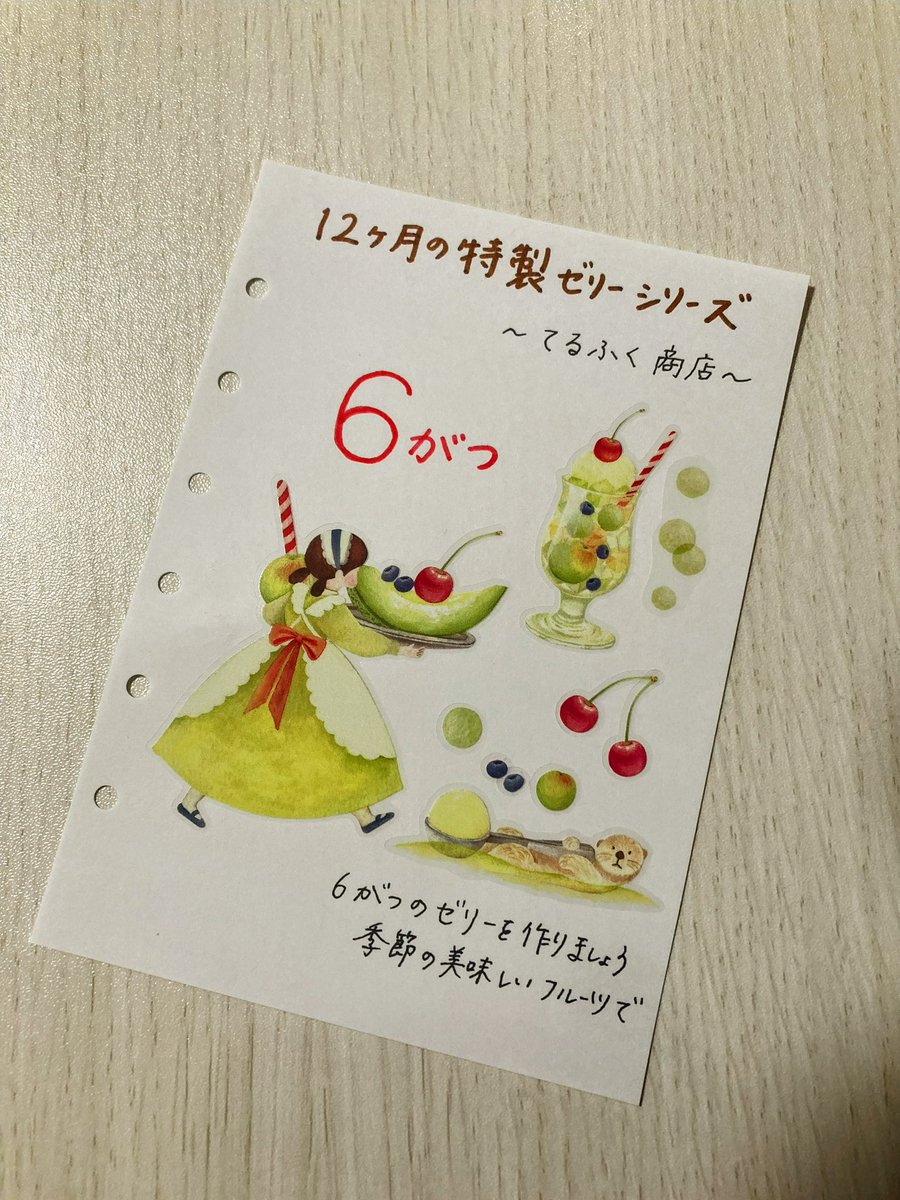 12ヶ月の特製ゼリーシリーズ
～てるふく商店～
6がつ
6がつのゼリーを作りましょう
季節の美味しいフルーツで